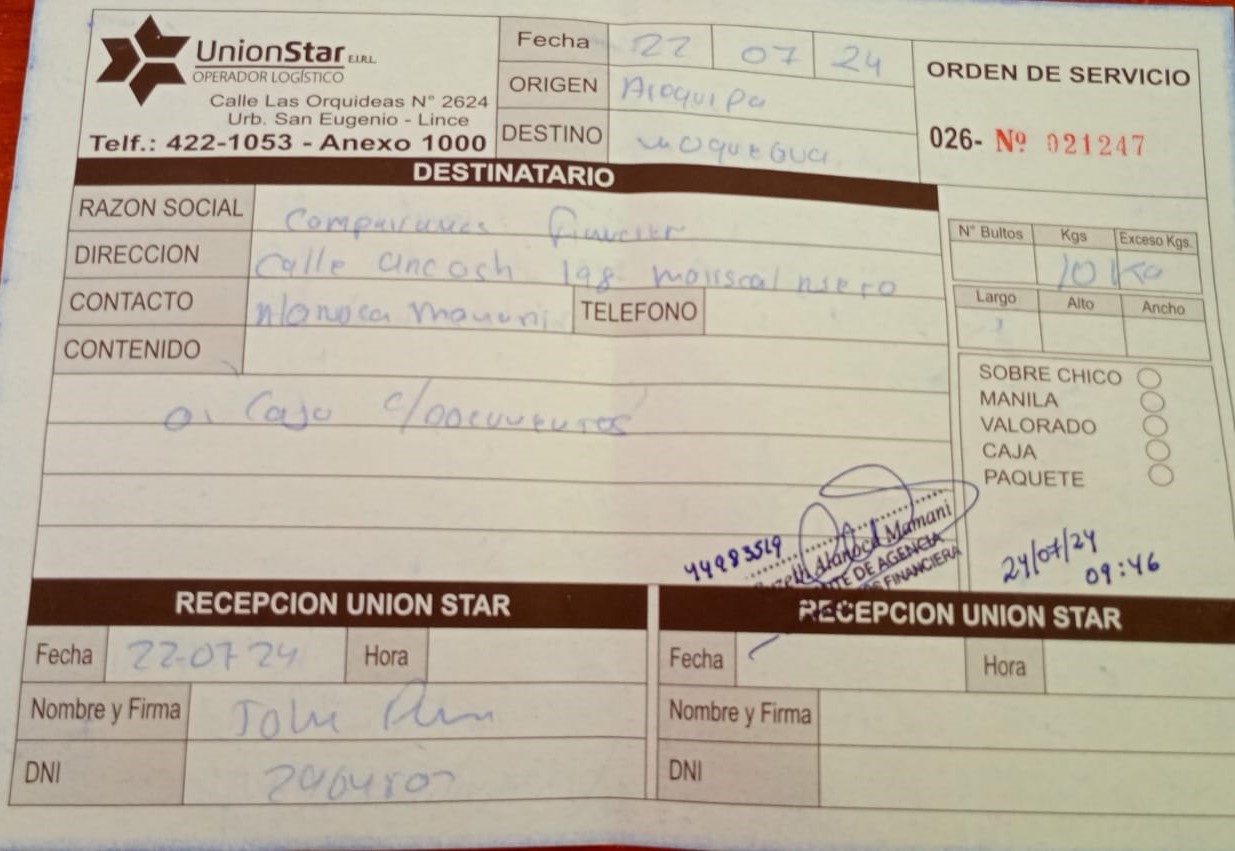 UnionStar E.I.R.L.
OPERADOR LOGÍSTICO
Calle Las Orquideas N° 2624
Urb. San Eugenio - Lince
Telf.: 422-1053 - Anexo 1000
Fecha 22 07 24
ORIGEN Arequipa
DESTINO Moquegua
ORDEN DE SERVICIO
026- Nº 021247
DESTINATARIO
RAZON SOCIAL
DIRECCION Calle Ancash 198 mariscal nieto
CONTACTO Mamani TELEFONO
CONTENIDO
01 Caja c/documentos
N° Bultos Kgs Exceso Kgs.
10 Kg
Largo Alto Ancho
SOBRE CHICO
MANILA
VALORADO
CAJA
PAQUETE
44983519
Alanoca Mamani
DE AGENCIA
FINANCIERA
24/07/24
09:46
RECEPCION UNION STAR
Fecha 22-07 24 Hora
Nombre y Firma
DNI
RECEPCION UNION STAR
Fecha Hora
Nombre y Firma
DNI